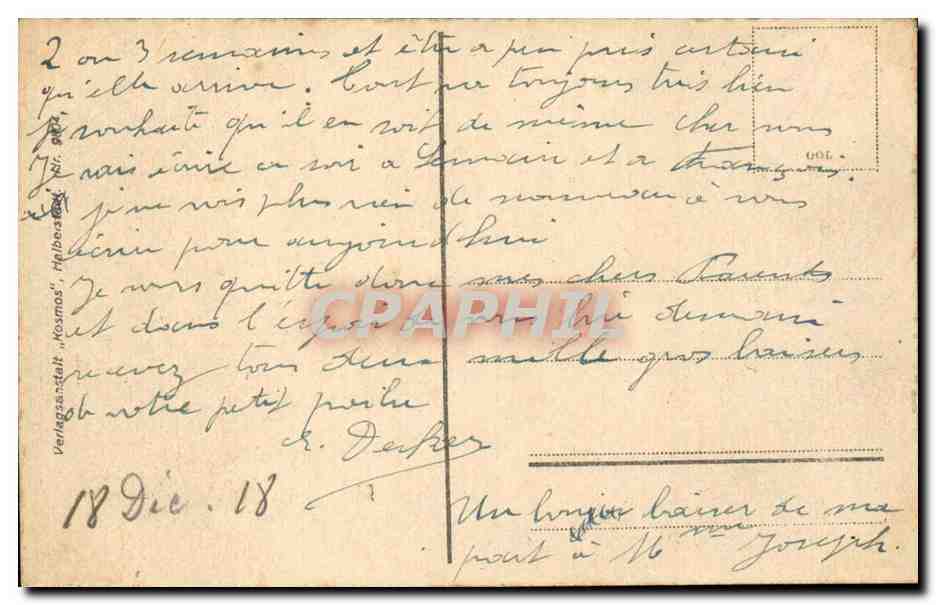 2 ou 3 semaines et être a peu pris certain
qu'elle arrive. toujours très bien
je souhaite qu'il en soit de même cher vous
Je vais écrire ce soir a Germain et a
je ne vois plus rien de nouveau à vous
écrire pour aujourd'hui
Je vous quitte donc mes chers Parents
et dans l'espoir de vous lire demain
recevez tous deux mille gros baisers
de votre petit poilu
18 Déc. 18
Un baiser de ma
part à Mme Joseph.
Verlagsanstalt „Kosmos", Halberstadt.
CPARPHIL